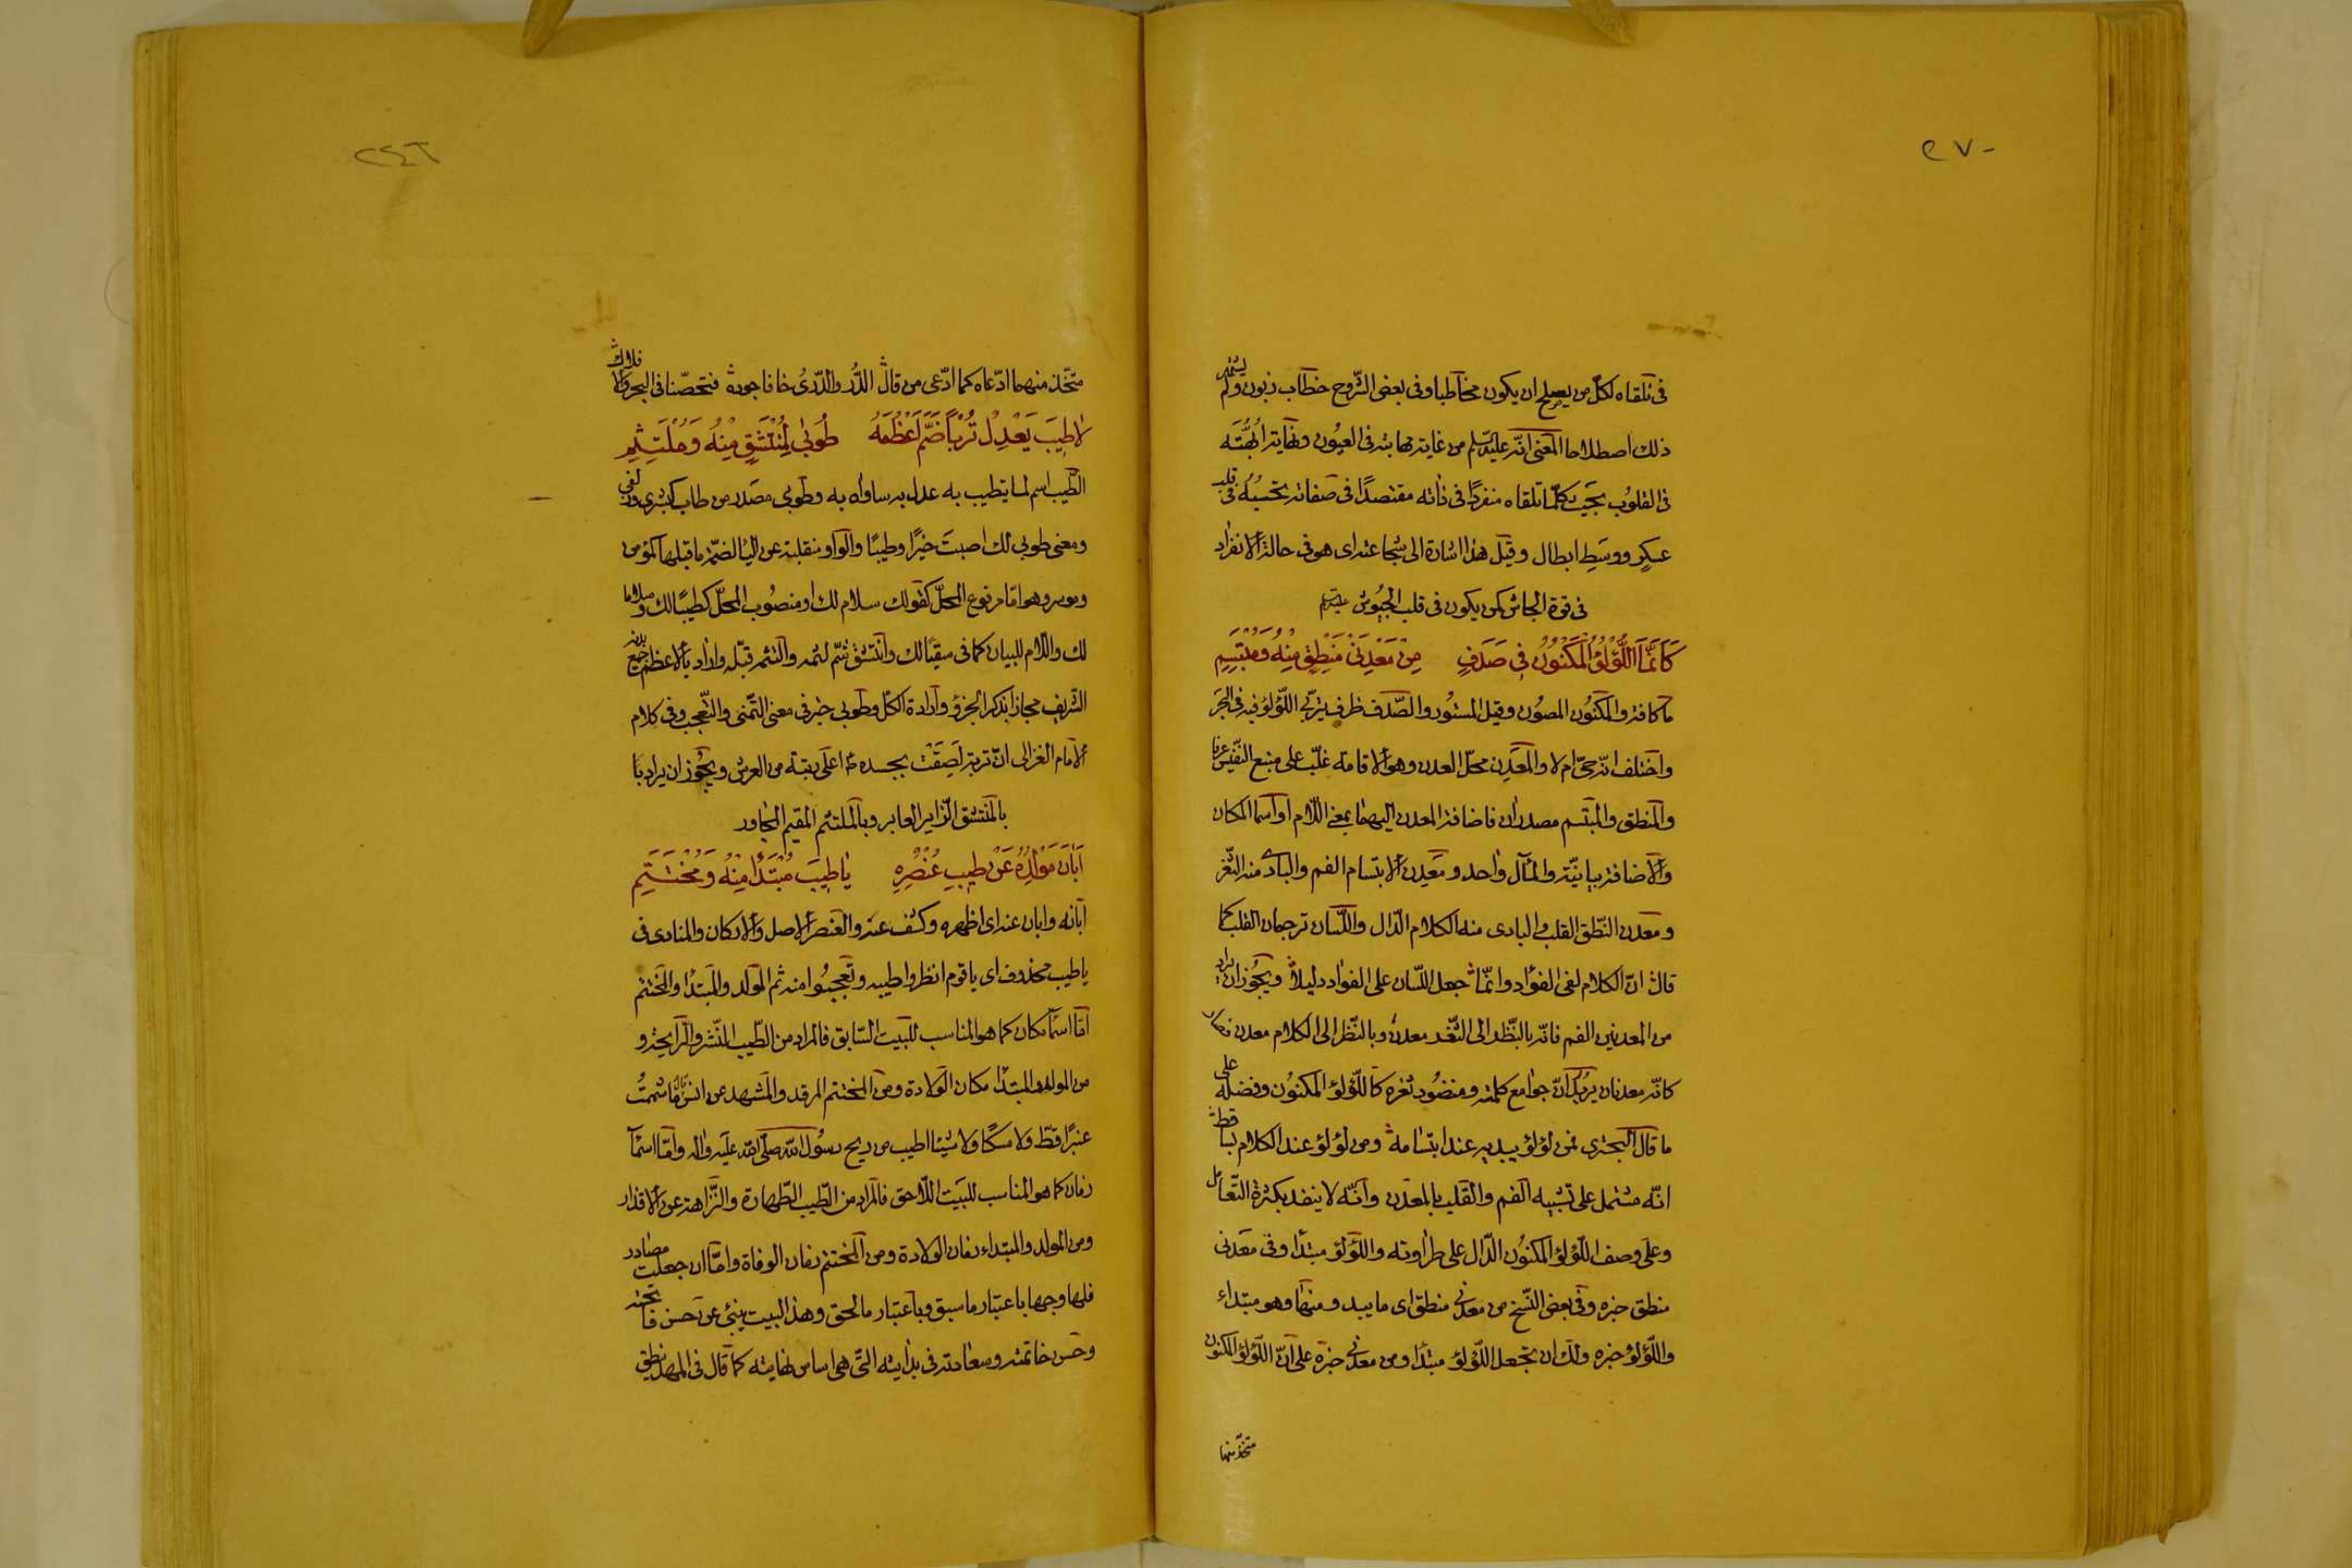 ٢٧٠
فى تلقاه لكل من يصلح ان يكون مخاطبا وفى بعض الشروح خطاب زبون ولم يشتهر
ذلك اصطلاحا المعنى انه عليه السلم من غاية مهابته فى العيون ونهاية ابهته
فى القلوب بحيث كلما تلقاه منفردا فى ذاته مقتصدا فى صفاته تحسبه فى قلب
عسكر ووسط ابطال وقيل هذا اشارة الى شجاعته اى هو فى حالة الانفراد
فى قوة الجاش كمن يكون فى قلب الجيوش
كَاَنَّمَا اللُّؤْلُؤُ الْمَكْنُونُ فِى صَدَفٍ مِنْ مَعْدِنَىْ مَنْطِقٍ مِنْهُ وَمُبْتَسِمِ
ما كافة والمكنون المصون وقيل المستور والصدف ظرف يتربى اللؤلؤ فيه فى البحر
واختلف انه حى ام لا والمعدن محل العدن وهو الاقامة غلب على منبع النفيس عرفا
والمنطق والمبتسم مصدران فاضافة المعدن اليهما بمعنى اللام او اسما المكان
والاضافة بيانية والمآل واحد ومعدن الابتسام الفم والبادى منه الثغر
ومعدن النطق القلب والبادى منه الكلام الدال واللسان ترجمان القلب كما
قال ان الكلام لفى الفؤاد وانما جعل اللسان على الفواد دليلا ويجوز ان يراد
من المعدنين الفم فانه بالنظر الى الثغر معدن وبالنظر الى الكلام معدن فصار
كانه معدنان يريد ان جوامع كلمته ومنضود ثغره كاللؤلؤ المكنون وفضله على
ما قال البحترى فمن لؤلؤ يبديه عند ابتسامه ومن لؤلؤ عند الكلام يساقطه
انه مشتمل على تشبيه الفم والقلب بالمعدن وانه لا ينفد بكثرة التعامل
وعلى وصف اللؤلؤ المكنون الدال على طراوته واللؤلؤ مبتدأ وفى معدنى
منطق خبره وفى بعض النسخ من معدنى منطق اى ما يبدو منهما وهو مبتداء
واللؤلؤ خبره ولك ان تجعل اللؤلؤ مبتدأ ومن معدنى خبره على ان اللؤلؤ المكنون
متخذ منهما
متخذ منهما ادعاه كما ادعى من قال الدر والدرى خافا جوده فتحصنا فى البحر والافلاك
لاٰ طِيبَ يَعْدِلُ تُرْباً ضَمَّ اَعْظُمَهُ طُوبٰى لِمُنْتَشِقٍ مِنْهُ وَمُلْتَثِمِ
الطيب اسم لما يتطيب به عدل به ساواه به وطوبى مصدر من طاب كبشرى وزلفى
ومعنى طوبى لك اصبت خيرا وطيبا والواو منقلبة عن اليا لضمة ما قبلها كموقن
وموسر وهو اما مرفوع المحل كقولك سلام لك او منصوب المحل كطيبا لك وسلاما
لك واللام للبيان كما فى سقيا لك وانتشق شم لثمه والتثم قبله واراد بالاعظم جميع بدنه
الشريف مجازا بذكر الجزؤ وارادة الكل وطوبى خبر فى معنى التمنى والتعجب وفى كلام
الامام الغزالى ان تربة لصقت بجسده اعلى رتبة من العرش ويجوز ان يراد با
بالمنتشق الزاير العابر وبالملتثم المقيم المجاور
اَبَانَ مَوْلِدُهُ عَنْ طِيبِ عُنْصُرِهِ يٰا طِيبَ مُبْتَدَأٍ مِنْهُ وَمُخْتَتَمِ
ابانه وابان عنه اى اظهره وكشف عنه والعنصر الاصل والاركان والمنادى فى
ياطيب محذوف اى ياقوم انظروا طيبه وتعجبوا منه ثم المولد والمبتدا والمختتم
اما اسما مكان كما هو المناسب للبيت السابق فالمراد من الطيب النشر والرايحة و
من المولد والمبتدأ مكان الولادة ومن المختتم المرقد والمشهد عن انس ما شممت
عنبرا قط ولا مسكا ولا شيئا اطيب من ريح رسول الله صلى الله عليه واله واما اسما
زمان كما هو المناسب للبيت اللاحق فالمراد من الطيب الطهارة والنزاهة عن الاقذار
ومن المولد والمبتداء زمان الولادة ومن المختتم زمان الوفاة واما ان جعلت مصادر
فلها وجهها باعتبار ما سبق وباعتبار مالحق وهذا البيت ينبئ عن حسن فاتحته
وحسن خاتمته وسعادته فى بدايته التى هى اساس نهايته كما قال فى المهد ينطق